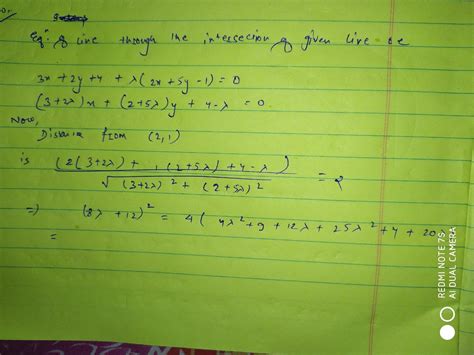 Eqⁿ of line through the intersection of given line be
3x + 2y + 4 + λ(2x + 5y - 1) = 0
(3+2λ)x + (2+5λ)y + 4-λ = 0
Now,
Distance from (2,1)
is (2(3+2λ) + 1(2+5λ) + 4-λ) / √((3+2λ)² + (2+5λ)²) = 2
=> (8λ + 12)² = 4(4λ² + 9 + 12λ + 25λ² + 4 + 20λ
=
REDMI NOTE 7S
AI DUAL CAMERA